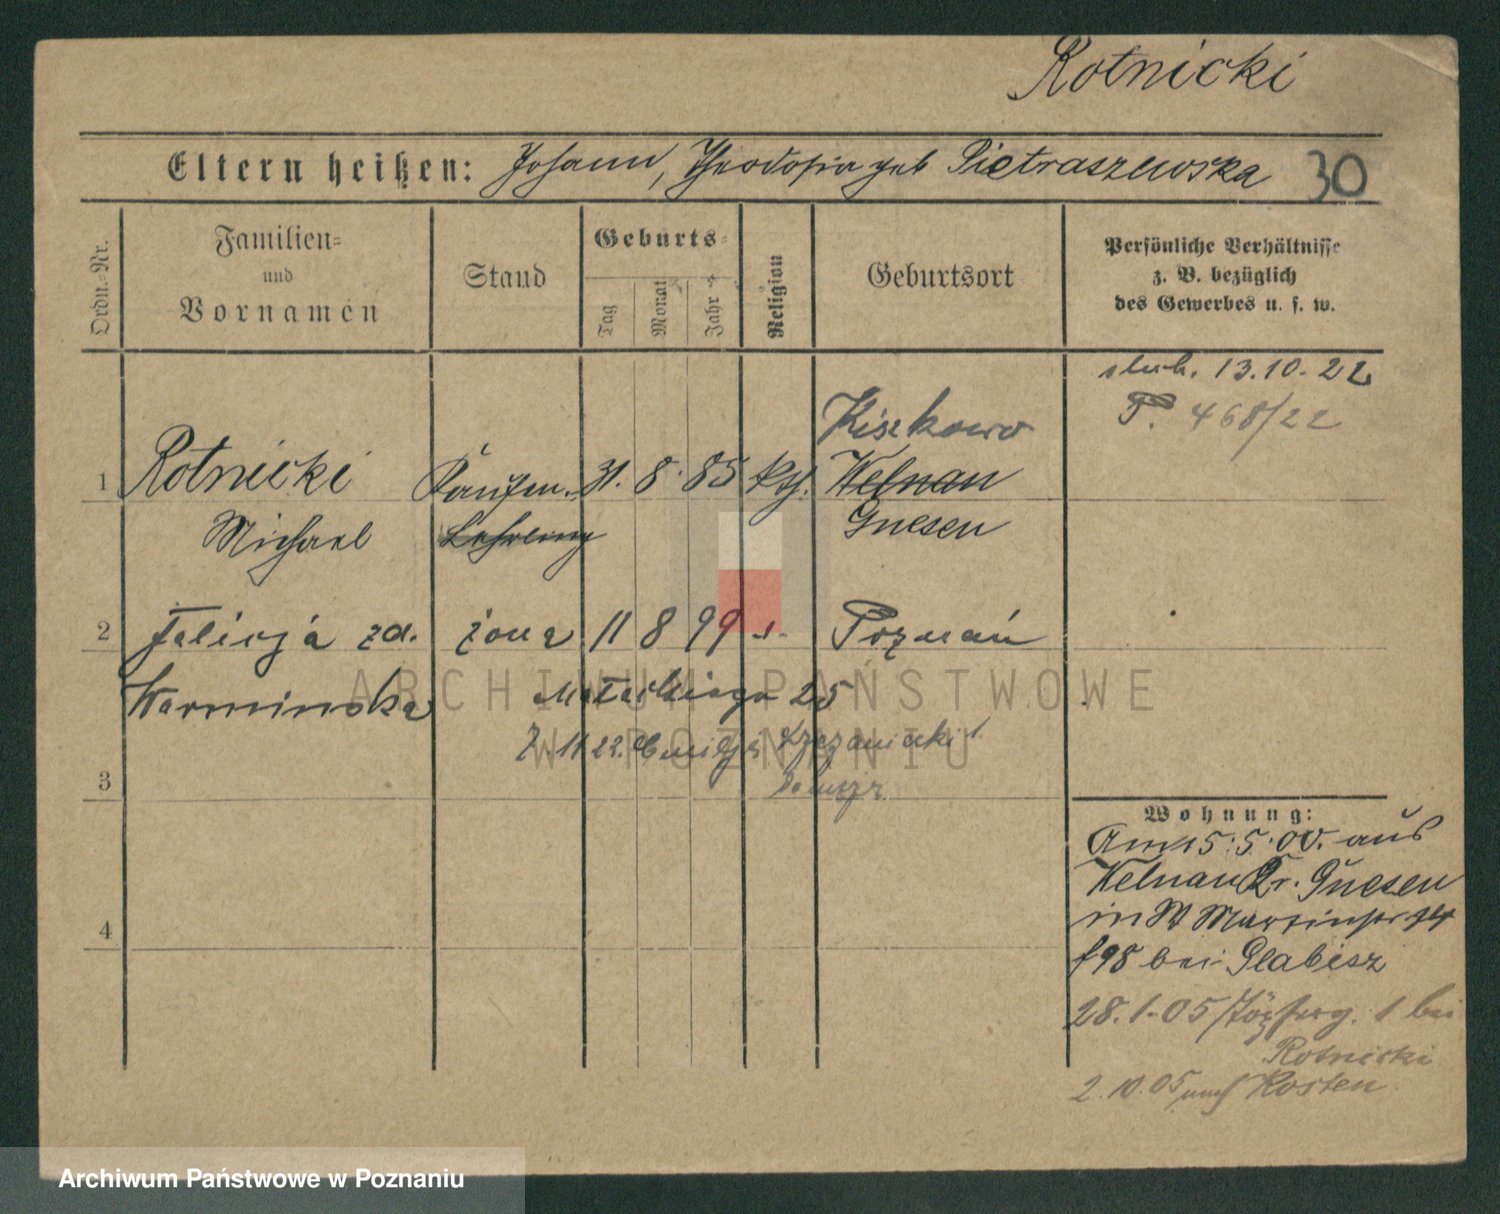 Rotnicki
Eltern heißen: Johann, Theodosia geb Pietraszewska 30
Ordn.=Nr.
Familien=
und
Vornamen
Stand
Geburts=
Tag
Monat
Jahr
Religion
Geburtsort
Persönliche Verhältnisse
z. B. bezüglich
des Gewerbes u. s. w.
ślub. 13.10.22
P. 468/22
Kiszkowo
1 Rotnicki Kaufm. 31. 8. 85 kth. Welnau
Michael Lehrling Gnesen
2 Felicja zd. żona 11 8 99 Poznań
Warminska 25
7. 11 22.
3
Wohnung:
Am 15.5.00. aus
Welnau Kr. Gnesen
in St Martinstr
f98 bei Glabisz
28.1.05 1 bei
Rotnicki
2.10.05 nach Kosten
4
ARCHIWUM PAŃSTWOWE
W POZNANIU
Archiwum Państwowe w Poznaniu